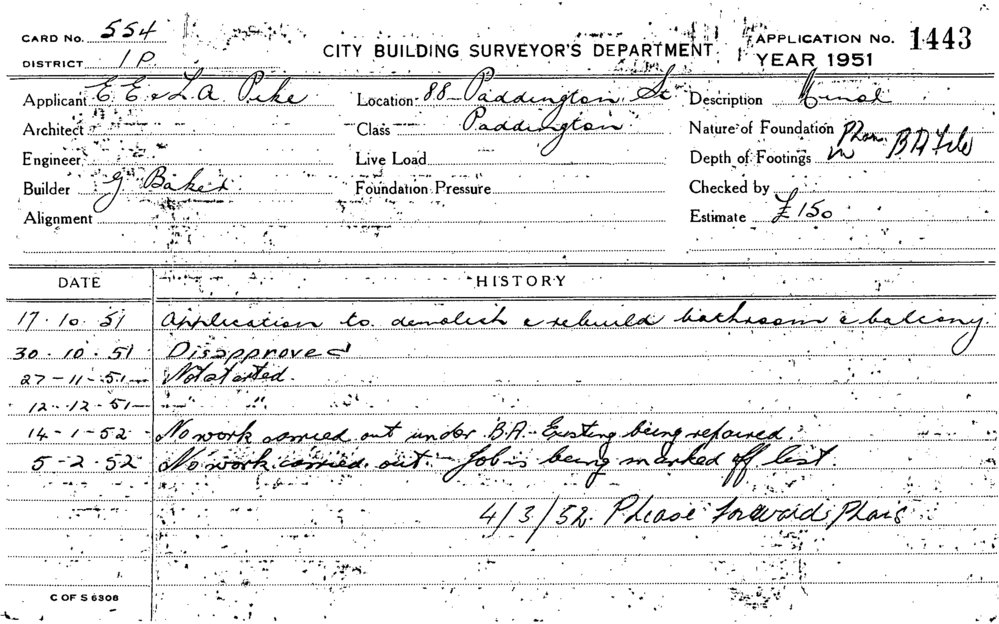 CARD No. 554
DISTRICT 1P.
CITY BUILDING SURVEYOR'S DEPARTMENT
APPLICATION No. 1443
YEAR 1951
Applicant E E & L A Pike
Location 88 Paddington St
Description Minor
Architect
Class Paddington
Nature of Foundation Plan
Engineer
Live Load
Depth of Footings in BA File
Builder G Baker
Foundation Pressure
Checked by
Alignment
Estimate £150
DATE HISTORY
17.10.51 Application to demolish & rebuild bathroom & balcony.
30.10.51 Disapproved
27-11-51 Not started.
12.12.51 " "
14-1-52 No work carried out under B.A. Existing being repaired.
5-2.52 No work carried out. Job is being marked off list.
4/3/52. Please forward Plans
C OF S 6308